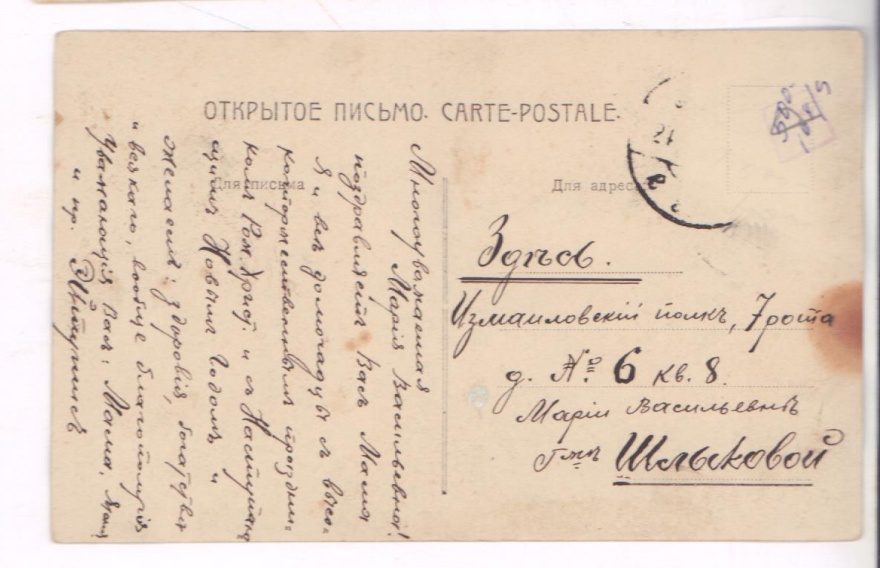 ОТКРЫТОЕ ПИСЬМО. CARTE-POSTALE.
Для письма
Для адреса
Многоуважаемая
Марія Васильевна!
поздравляетъ Васъ Мама
я и всѣ домочадцы съ высо-
которжественнымъ праздни-
комъ Рож. Христ. и съ Наступаю
щимъ Новымъ Годомъ и
желаемъ: здоровія, богатства
и всякаго, вообще благополучія
Уважающія Васъ: Мама,
и пр.
Здѣсь.
Измаиловскій полкъ, 7 рота
д. № 6 кв. 8.
Маріи Васильевнѣ
Гжѣ Шлыковой